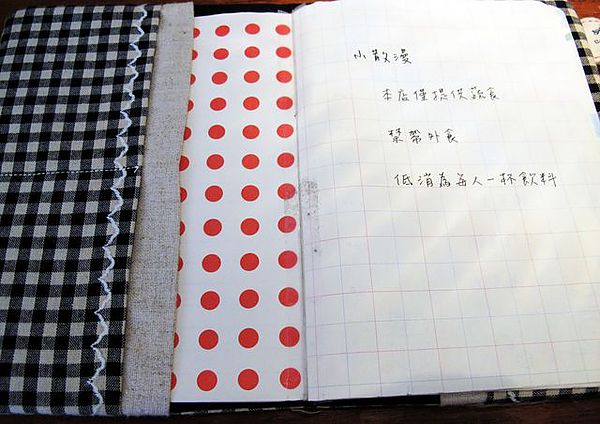 小散漫
本店僅提供蔬食
禁帶外食
低消為每人一杯飲料